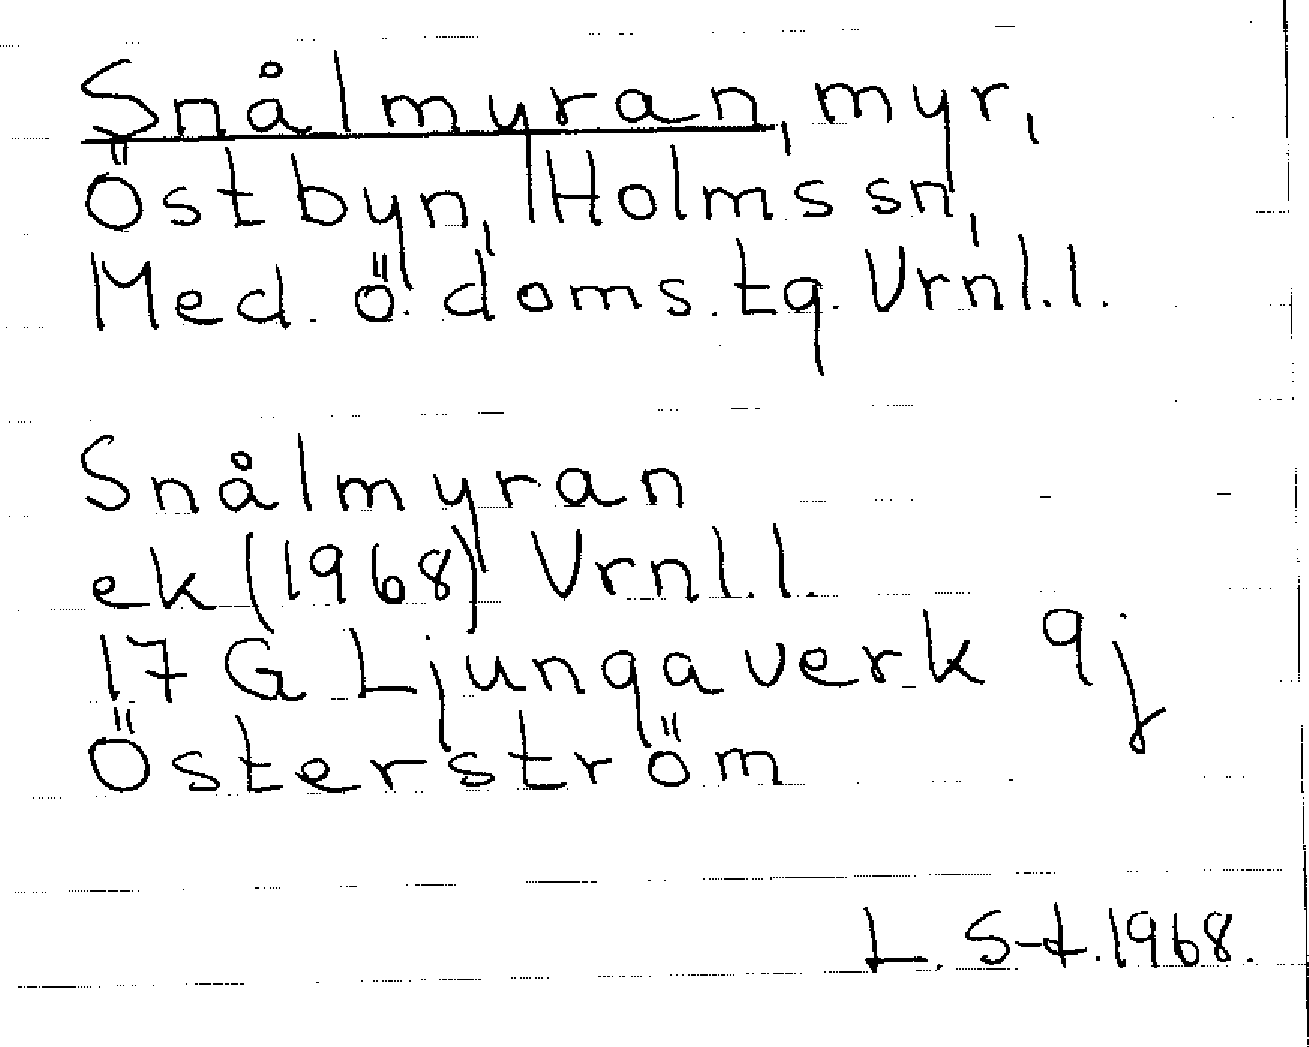 Snålmyran, myr,
Östbyn, Holms sn,
Med. ö. doms. tg. Vrnl. l.
Snålmyran
ek (1968) Vrnl. l.
17 G Ljungaverk 9j
Österström
L. S-t. 1968.